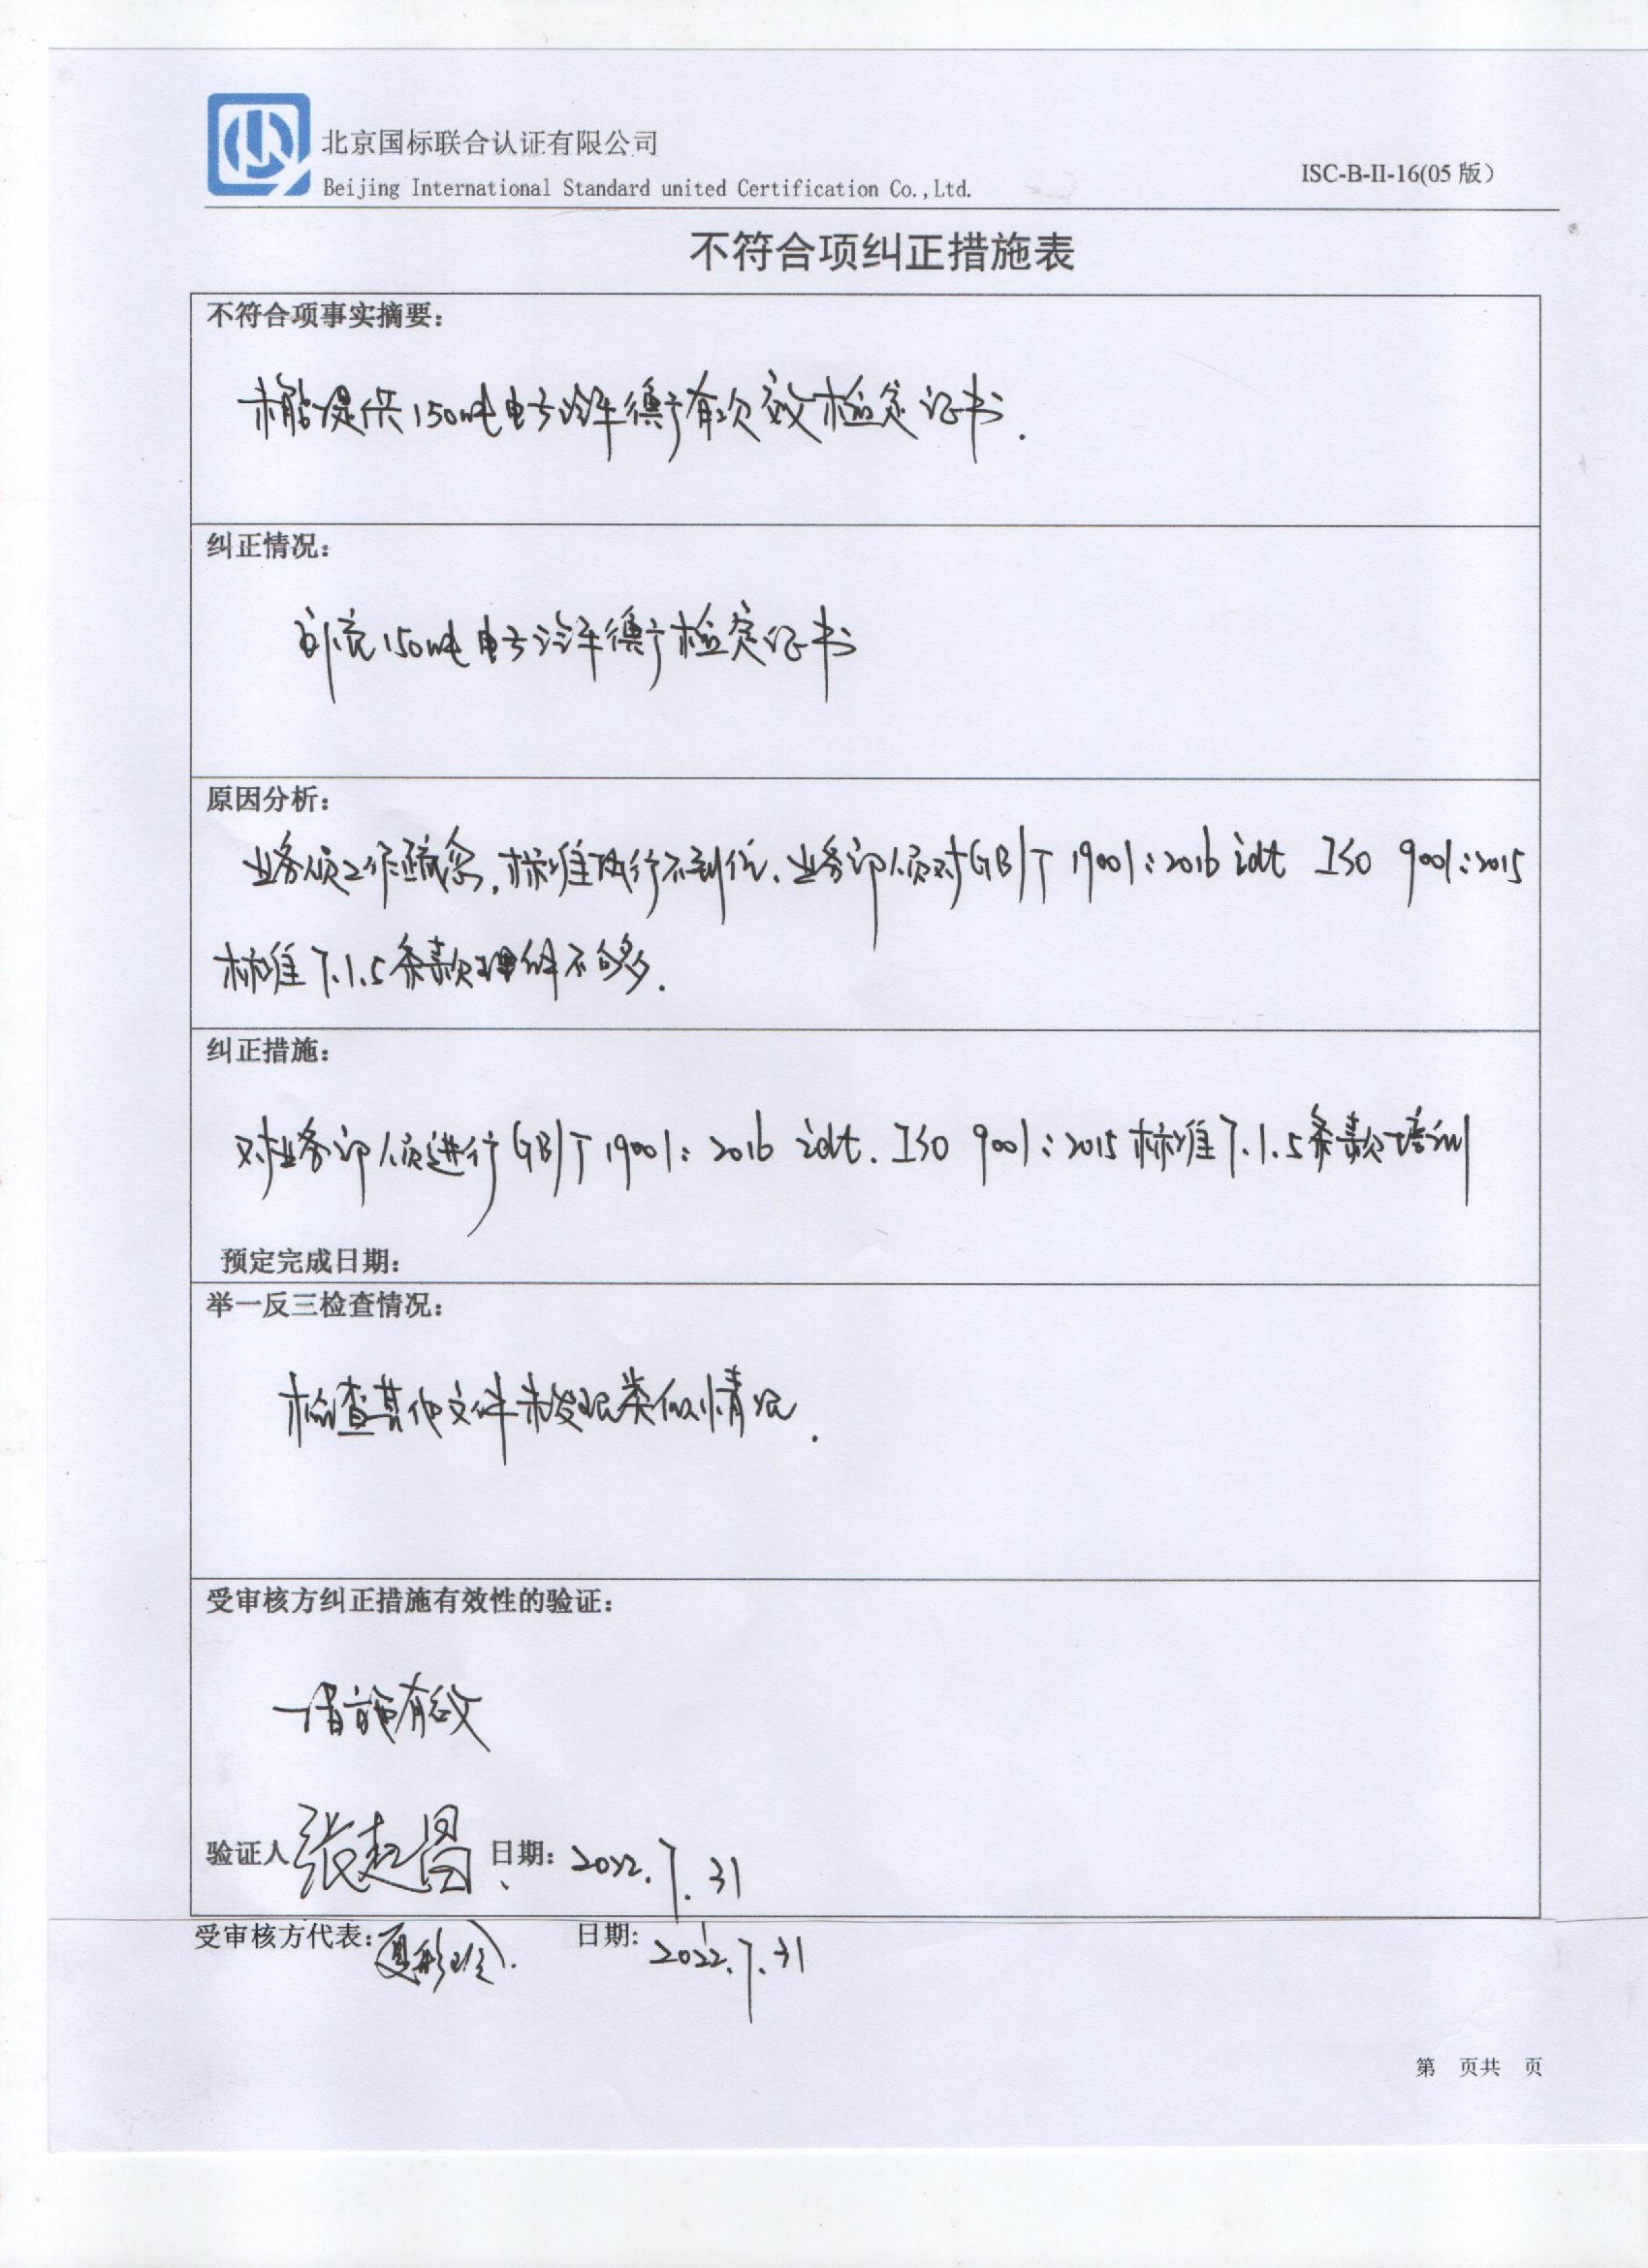 北京国标联合认证有限公司
Beijing International Standard united Certification Co.,Ltd.
ISC-B-II-16(05 版)
不符合项纠正措施表
不符合项事实摘要:
未能提供150吨电子汽车衡有效检定证书.
纠正情况:
150吨电子汽车衡检定证书
原因分析:
业务员工作疏忽,标准执行不到位、业务部人员对GB/T 19001:2016 idt ISO 9001:2015
标准7.1.5条款理解不够.
纠正措施:
对业务部人员进行GB/T 19001:2016 idt. ISO 9001:2015标准7.1.5条款培训
预定完成日期:
举一反三检查情况:
检查其他文件未发现类似情况.
受审核方纠正措施有效性的验证:
措施有效
验证人 张 日期: 2022.7.31
受审核方代表: 夏 日期: 2022.7.31
第 页共 页